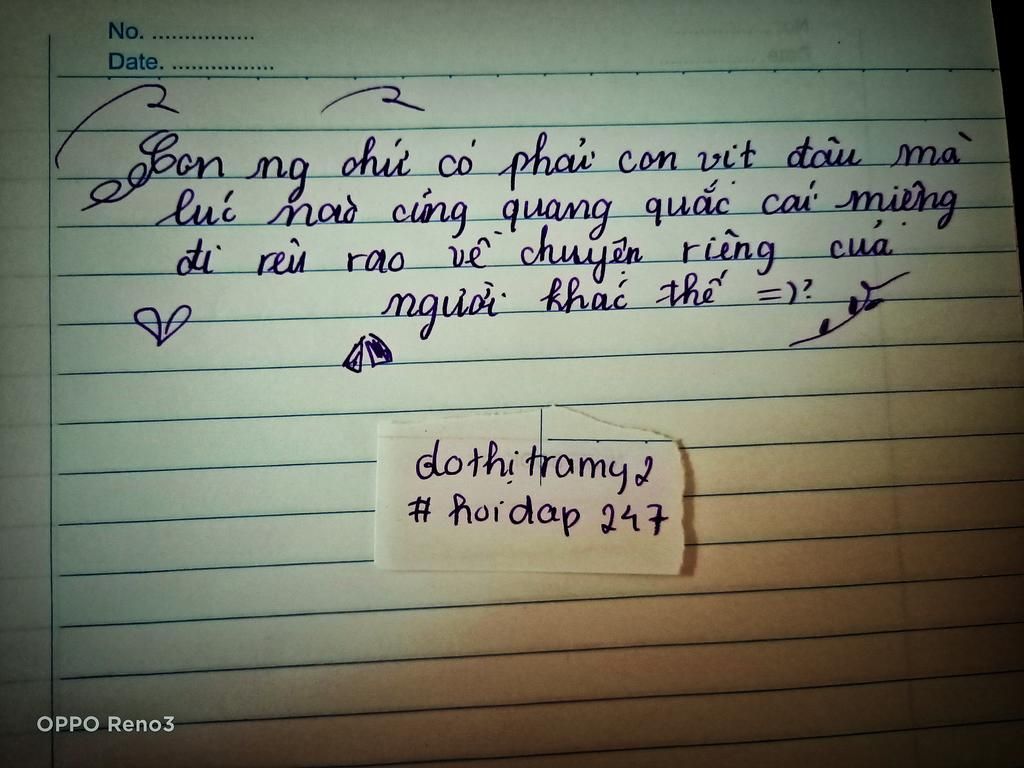 No. ................
Date. ................
Con ng chứ có phải con vịt đâu mà
lúc nào cũng quang quắc cái miệng
đi rêu rao về chuyện riêng của
người khác thế =)?
dothitramy2
# hoidap 247
OPPO Reno3